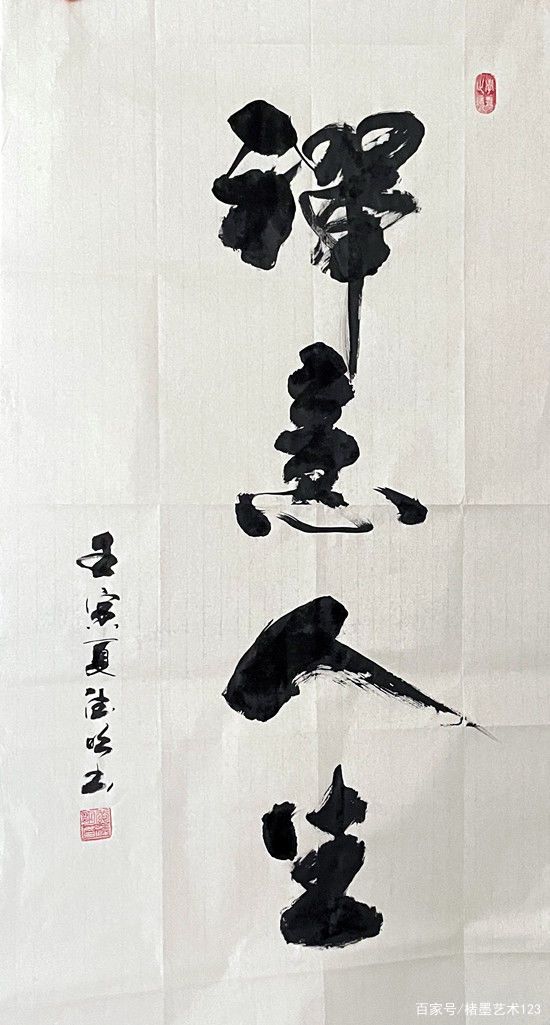 禪意人生
壬寅夏德书
百家号/楮墨艺术123